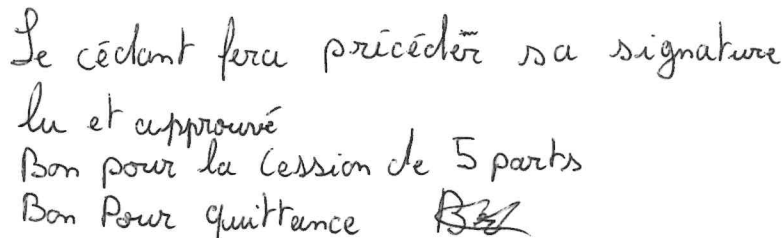 Le cédant fera précéder sa signature
lu et approuvé
Bon pour la Cession de 5 parts
Bon Pour quittance